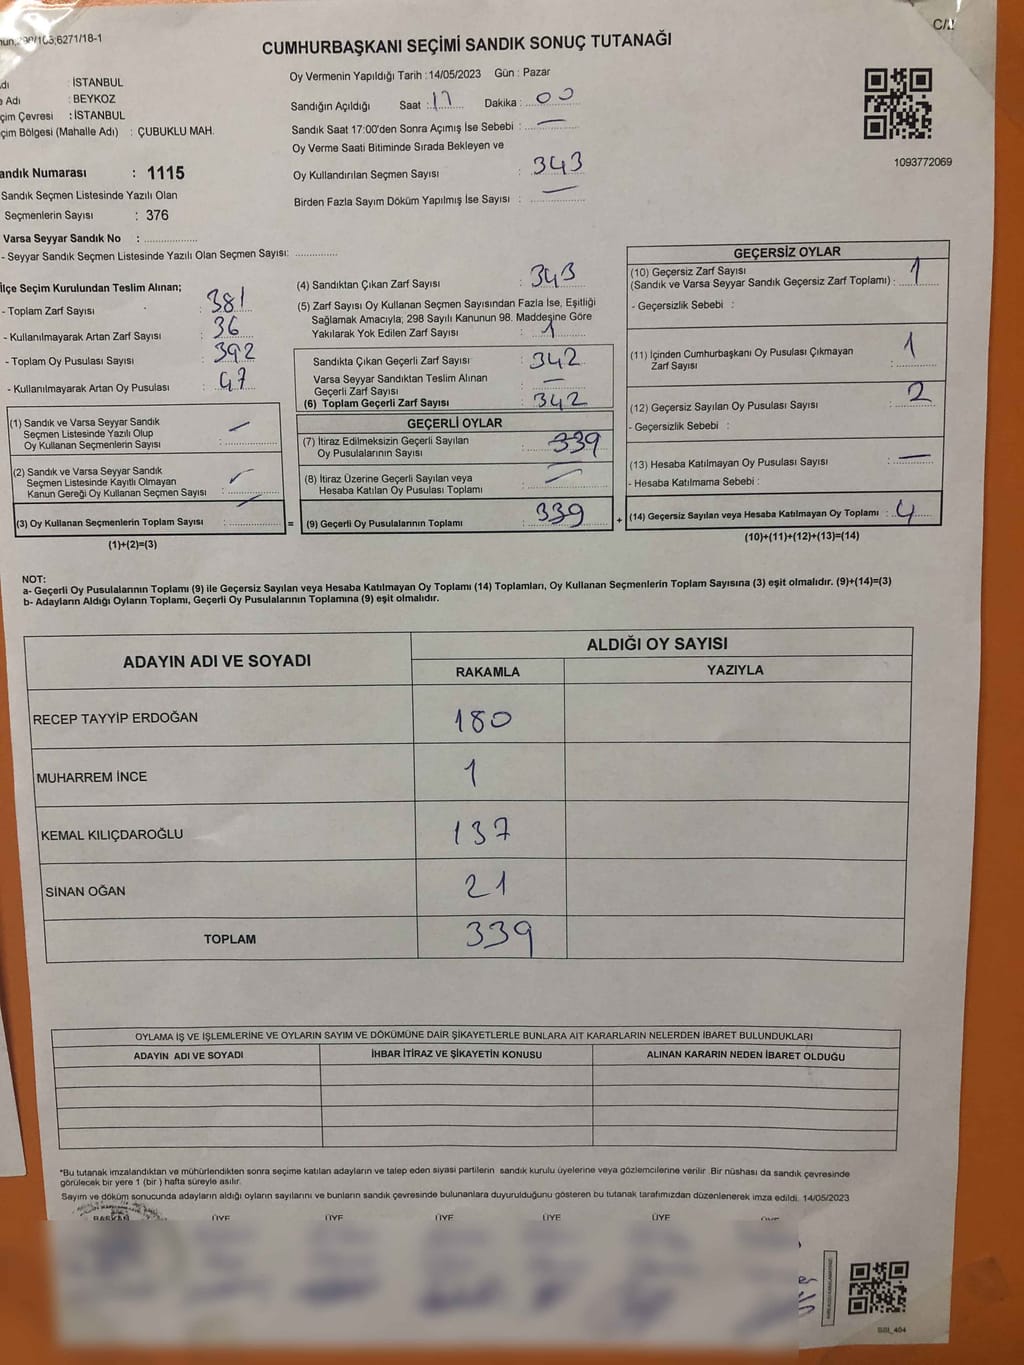 CUMHURBAŞKANI SEÇİMİ SANDIK SONUÇ TUTANAĞI
: İSTANBUL
Adı : BEYKOZ
çim Çevresi : İSTANBUL
çim Bölgesi (Mahalle Adı) : ÇUBUKLU MAH.
andık Numarası : 1115
Sandık Seçmen Listesinde Yazılı Olan
Seçmenlerin Sayısı : 376
Varsa Seyyar Sandık No :
- Seyyar Sandık Seçmen Listesinde Yazılı Olan Seçmen Sayısı:
Oy Vermenin Yapıldığı Tarih :14/05/2023 Gün : Pazar
Sandığın Açıldığı Saat : 17 Dakika : 00
Sandık Saat 17:00'den Sonra Açımış İse Sebebi : —
Oy Verme Saati Bitiminde Sırada Bekleyen ve
Oy Kullandırılan Seçmen Sayısı : 343
Birden Fazla Sayım Döküm Yapılmış İse Sayısı : —
1093772069
İlçe Seçim Kurulundan Teslim Alınan;
- Toplam Zarf Sayısı : 381
- Kullanılmayarak Artan Zarf Sayısı : 36
- Toplam Oy Pusulası Sayısı : 392
- Kullanılmayarak Artan Oy Pusulası : 47
(1) Sandık ve Varsa Seyyar Sandık
Seçmen Listesinde Yazılı Olup
Oy Kullanan Seçmenlerin Sayısı : —
(2) Sandık ve Varsa Seyyar Sandık
Seçmen Listesinde Kayıtlı Olmayan
Kanun Gereği Oy Kullanan Seçmen Sayısı : —
(3) Oy Kullanan Seçmenlerin Toplam Sayısı : — =
(1)+(2)=(3)
(4) Sandıktan Çıkan Zarf Sayısı : 343
(5) Zarf Sayısı Oy Kullanan Seçmen Sayısından Fazla İse, Eşitliği
Sağlamak Amacıyla; 298 Sayılı Kanunun 98. Maddesine Göre
Yakılarak Yok Edilen Zarf Sayısı : 1
Sandıkta Çıkan Geçerli Zarf Sayısı : 342
Varsa Seyyar Sandıktan Teslim Alınan
Geçerli Zarf Sayısı : —
(6) Toplam Geçerli Zarf Sayısı : 342
GEÇERLİ OYLAR
(7) İtiraz Edilmeksizin Geçerli Sayılan
Oy Pusulalarının Sayısı : 339
(8) İtiraz Üzerine Geçerli Sayılan veya
Hesaba Katılan Oy Pusulası Toplamı : —
(9) Geçerli Oy Pusulalarının Toplamı : 339 +
GEÇERSİZ OYLAR
(10) Geçersiz Zarf Sayısı
(Sandık ve Varsa Seyyar Sandık Geçersiz Zarf Toplamı) : 1
- Geçersizlik Sebebi :
(11) İçinden Cumhurbaşkanı Oy Pusulası Çıkmayan
Zarf Sayısı : 1
(12) Geçersiz Sayılan Oy Pusulası Sayısı : 2
- Geçersizlik Sebebi :
(13) Hesaba Katılmayan Oy Pusulası Sayısı : —
- Hesaba Katılmama Sebebi :
(14) Geçersiz Sayılan veya Hesaba Katılmayan Oy Toplamı : 4
(10)+(11)+(12)+(13)=(14)
NOT:
a- Geçerli Oy Pusulalarının Toplamı (9) ile Geçersiz Sayılan veya Hesaba Katılmayan Oy Toplamı (14) Toplamları, Oy Kullanan Seçmenlerin Toplam Sayısına (3) eşit olmalıdır. (9)+(14)=(3)
b- Adayların Aldığı Oyların Toplamı, Geçerli Oy Pusulalarının Toplamına (9) eşit olmalıdır.
ADAYIN ADI VE SOYADI ALDIĞI OY SAYISI
RAKAMLA YAZIYLA
RECEP TAYYİP ERDOĞAN 180
MUHARREM İNCE 1
KEMAL KILIÇDAROĞLU 137
SİNAN OĞAN 21
TOPLAM 339
OYLAMA İŞ VE İŞLEMLERİNE VE OYLARIN SAYIM VE DÖKÜMÜNE DAİR ŞİKAYETLERLE BUNLARA AİT KARARLARIN NELERDEN İBARET BULUNDUKLARI
ADAYIN ADI VE SOYADI İHBAR İTİRAZ VE ŞİKAYETİN KONUSU ALINAN KARARIN NEDEN İBARET OLDUĞU
*Bu tutanak imzalandıktan ve mühürlendikten sonra seçime katılan adayların ve talep eden siyasi partilerin sandık kurulu üyelerine veya gözlemcilerine verilir. Bir nüshası da sandık çevresinde
görülecek bir yere 1 (bir ) hafta süreyle asılır.
Sayım ve döküm sonucunda adayların aldığı oyların sayılarını ve bunların sandık çevresinde bulunanlara duyurulduğunu gösteren bu tutanak tarafımızdan düzenlenerek imza edildi. 14/05/2023
BAŞKAN ÜYE ÜYE ÜYE ÜYE ÜYE ÜYE